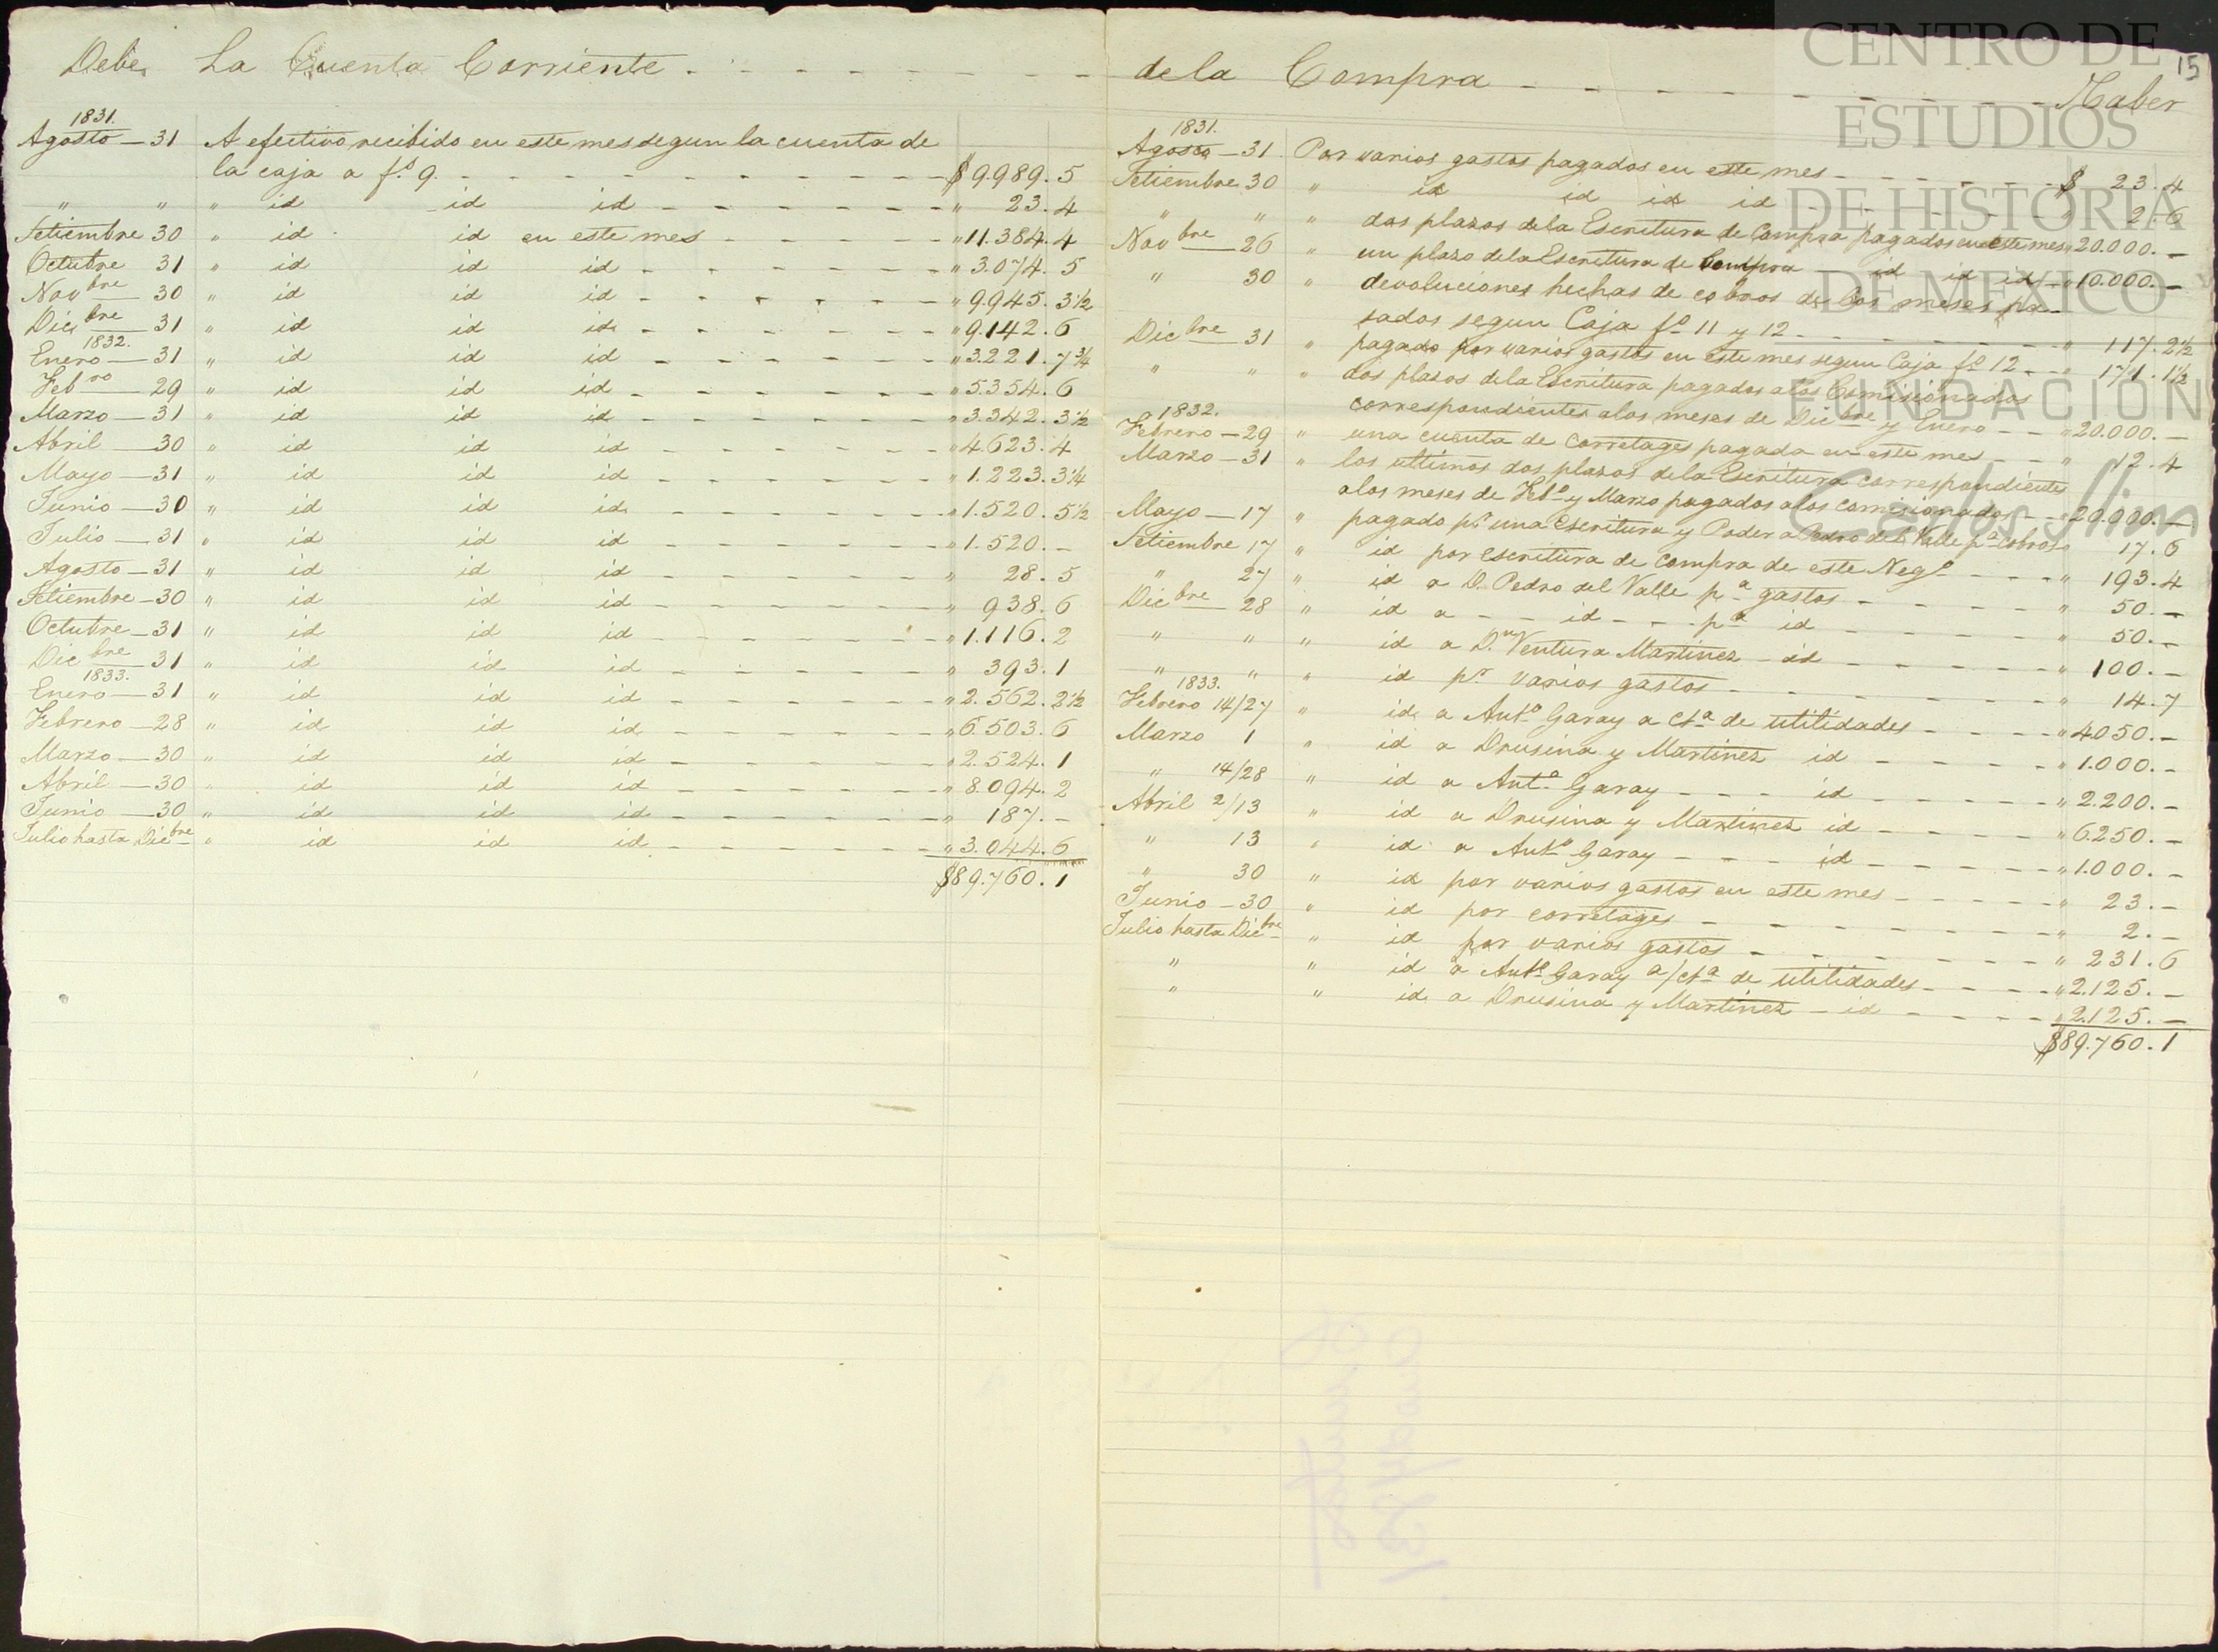 Debe La Cuenta Corriente
1831.
Agosto — 31 A efectivo recibido en este mes segun la cuenta de
la caja a fº 9. $ 9.989. 5
" " " id id id " 23. 4
Setiembre 30 " id id en este mes " 11.384. 4
Octubre 31 " id id id " 3.074. 5
Novbre 30 " id id id " 9.945. 3½
Dicbre 31 " id id id " 9.142. 6
1832.
Enero — 31 " id id id " 3.221. 7¾
Febro — 29 " id id id " 5.354. 6
Marzo — 31 " id id id " 3.342. 3½
Abril — 30 " id id id " 4.623. 4
Mayo — 31 " id id id " 1.223. 3¼
Junio — 30 " id id id " 1.520. 5½
Julio — 31 " id id id " 1.520. —
Agosto — 31 " id id id " 28. 5
Setiembre — 30 " id id id " 938. 6
Octubre — 31 " id id id " 1.116. 2
Dicbre 31 " id id id " 393. 1
1833.
Enero — 31 " id id id " 2.562. 2½
Febrero — 28 " id id id " 6.503. 6
Marzo — 30 " id id id " 2.524. 1
Abril — 30 " id id id " 8.094. 2
Junio — 30 " id id id " 187. —
Julio hasta Dicbre " id id id " 3.044. 6
$89.760. 1
de la Compra Haber
15
1831.
Agosto — 31 Por varios gastos pagados en este mes $ 23. 4
Setiembre 30 " id id id id " 2. 6
" " " dos plazos dela Escritura de Compra pagados en este mes " 20.000. —
Novbre 26 " un plazo dela Escritura de Compra id id id " 10.000. —
" 30 " devoluciones hechas de cobros de los meses pa-
sados segun Caja fº 11 y 12 " 117. 2½
Dicbre 31 " pagado por varios gastos en este mes segun Caja fº 12 " 171. 1½
" " " dos plazos dela Escritura pagados alos Comisionados
correspondientes alos meses de Dicbre y Enero " 20.000. —
1832.
Febrero — 29 " una cuenta de corretages pagada en este mes " 12. 4
Marzo — 31 " los ultimos dos plazos dela Escritura correspondientes
alos meses de Febº y Marzo pagados alos comisionados " 20.000. —
Mayo — 17 " pagado pr una Escritura y Poder a Pedro del Valle pª cobros " 17. 6
Setiembre 17 " id por escritura de compra de este Negº " 193. 4
" 27 " id a D. Pedro del Valle pª gastos " 50. —
Dicbre 28 " id a id pª id " 50. —
" " " id a Dn Ventura Martinez id " 100. —
" " " id pr varios gastos " 14. 7
1833.
Febrero 14/27 " id a Antº Garay a ctª de utilidades " 4050. —
Marzo 1 " id a Drusina y Martinez id " 1.000. —
" 14/28 " id a Antº Garay id " 2.200. —
Abril 2/13 " id a Drusina y Martinez id " 6.250. —
" 13 " id a Antº Garay id " 1.000. —
" 30 " id por varios gastos en este mes " 23. —
Junio — 30 " id por corretages " 2. —
Julio hasta Dicbre " id por varios gastos " 231. 6
" " id a Antº Garay a/ctª de utilidades " 2.125. —
" " id a Drusina y Martinez id " 2.125. —
$89.760. 1
CENTRO DE
ESTUDIOS
DE HISTORIA
DE MEXICO
FUNDACION
Carlos Slim